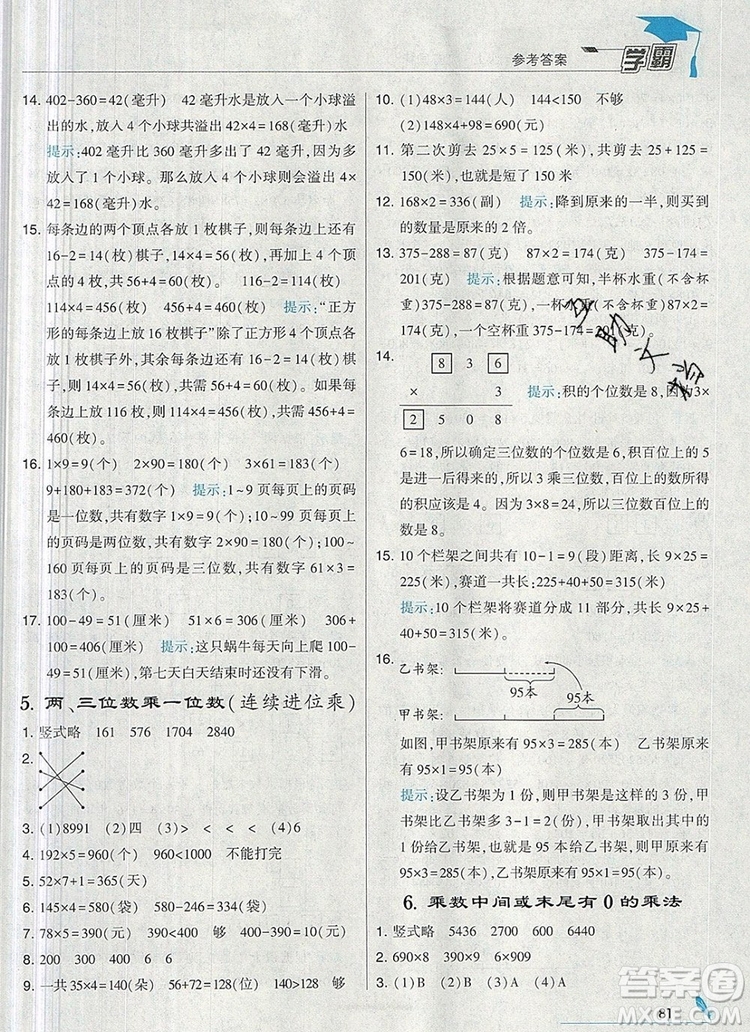 参考答案
学霸
14. 402-360=42(毫升) 42 毫升水是放入一个小球溢
出的水,放入 4 个小球共溢出 42×4=168(毫升)水
提示:402 毫升比 360 毫升多出了 42 毫升,因为只
放入了 1 个小球。那么放入 4 个小球则会溢出 4×
42=168(毫升)水。
15. 每条边的两个顶点各放 1 枚棋子,每条边上则还有
16-2=14(枚)棋子,14×4=56(枚),再加上 4 个顶
点,共 56+4=60(枚) 116-2=114(枚)
114×4=456(枚) 456+4=460(枚) 提示:“正方
形的每条边上放 16 枚棋子”除了正方形 4 个顶点各
放一枚棋子外,其余每条边上则有 16-2=14(枚),
四条边上共需 14×4=56(枚),共需 56+4=60(枚)。
如果每条边上放 116 枚,则其余每条边上则有 116-
2=114(枚),共需 114×4=456(枚),共需 456+4=
460(枚)。
16. 1×9=9(个) 2×90=180(个) 3×61=183(个)
9+180+183=372(个) 提示:1~9 页每页上的页码
是一位数,共有数字 1×9=9(个);10~99 页每页上
的页码是两位数,共有数字 2×90=180(个);100~
160 页每页上的页码是三位数,共有数字 61×3=
183(个)。
17. 100-49=51(厘米) 51×6=306(厘米) 306+
100=406(厘米) 提示:这只蜗牛每天向上爬 100-
49=51(厘米),第七天白天结束时还没有下滑。
5. 两、三位数乘一位数(连续进位乘)
1. 竖式略 161 576 1704 2840
2.
3. (1)8991 (2)四 (3)> < < < (4)6
4. 192×5=960(个) 960<1000 不能打完
5. 52×7+1=365(天)
6. 145×4=580(袋) 580-234=346(袋)
7. 78×5=390(元) 390<400 够 400-390=10(元)
8. 200 300 400 6 8 6
9. 一共35×4=140(朵) 56+72=128(位) 140>128 够
10. (1)48×3=144(人) 144<150 不够
(2)148×4+98=690(元)
11. 第二次剪去 25×5=125(米),共剪去 25+125=
150(米),也就是短了 150 米
12. 168×2=336(副) 提示:降到原来的一半,则买到
的数量是原来的 2 倍。
13. 375-288=87(克) 87×2=174(克) 375-174=
201(克) 提示:根据题意可知,半杯水重(不含杯
重)375-288=87(克),一杯水重(不含杯重)87×2=
174(克),一个空杯重 375-174=201(克)。
14.
8 3 6
× 3
2 5 0 8
提示:积的个位数是 8,因为3×
6=18,所以确定三位数的个位数是 6,积百位上的 5
是进一以后的得数,所以 3 乘三位数,百位上的数所得
的积应该是 4。因为 3×8=24,所以三位数,百位上的
数是 8。
15. 10 个栏架之间共有 10-1=9(段)距离,长9×25=
225(米),赛道一共长:225+50+40=315(米)
提示:10 个栏架将赛道分成 11 部分,共长 9×25+
50+40=315(米)。
16. 乙书架:
95本 95本
甲书架:
如图,甲书架原来有 95×3=285(本) 乙书架原来
有 95×1=95(本)
提示:设乙书架为 1 份,则甲书架原来有 3 份,甲书
架比乙书架多 3-1=2(份),所以从甲书架取出其中
的 1 份给乙书架后,两书架一样多,则甲书架原来有
95×3=285(本),乙书架原来有 95×1=95(本)。
6. 乘数中间或末尾有 0 的乘法
1. 竖式略 5436 2700 600 6440
2. 690×8 390×9 6×909
3. (1)B (2)A (3)B (4)A
互助文档
答案圈
MXQE.COM
81